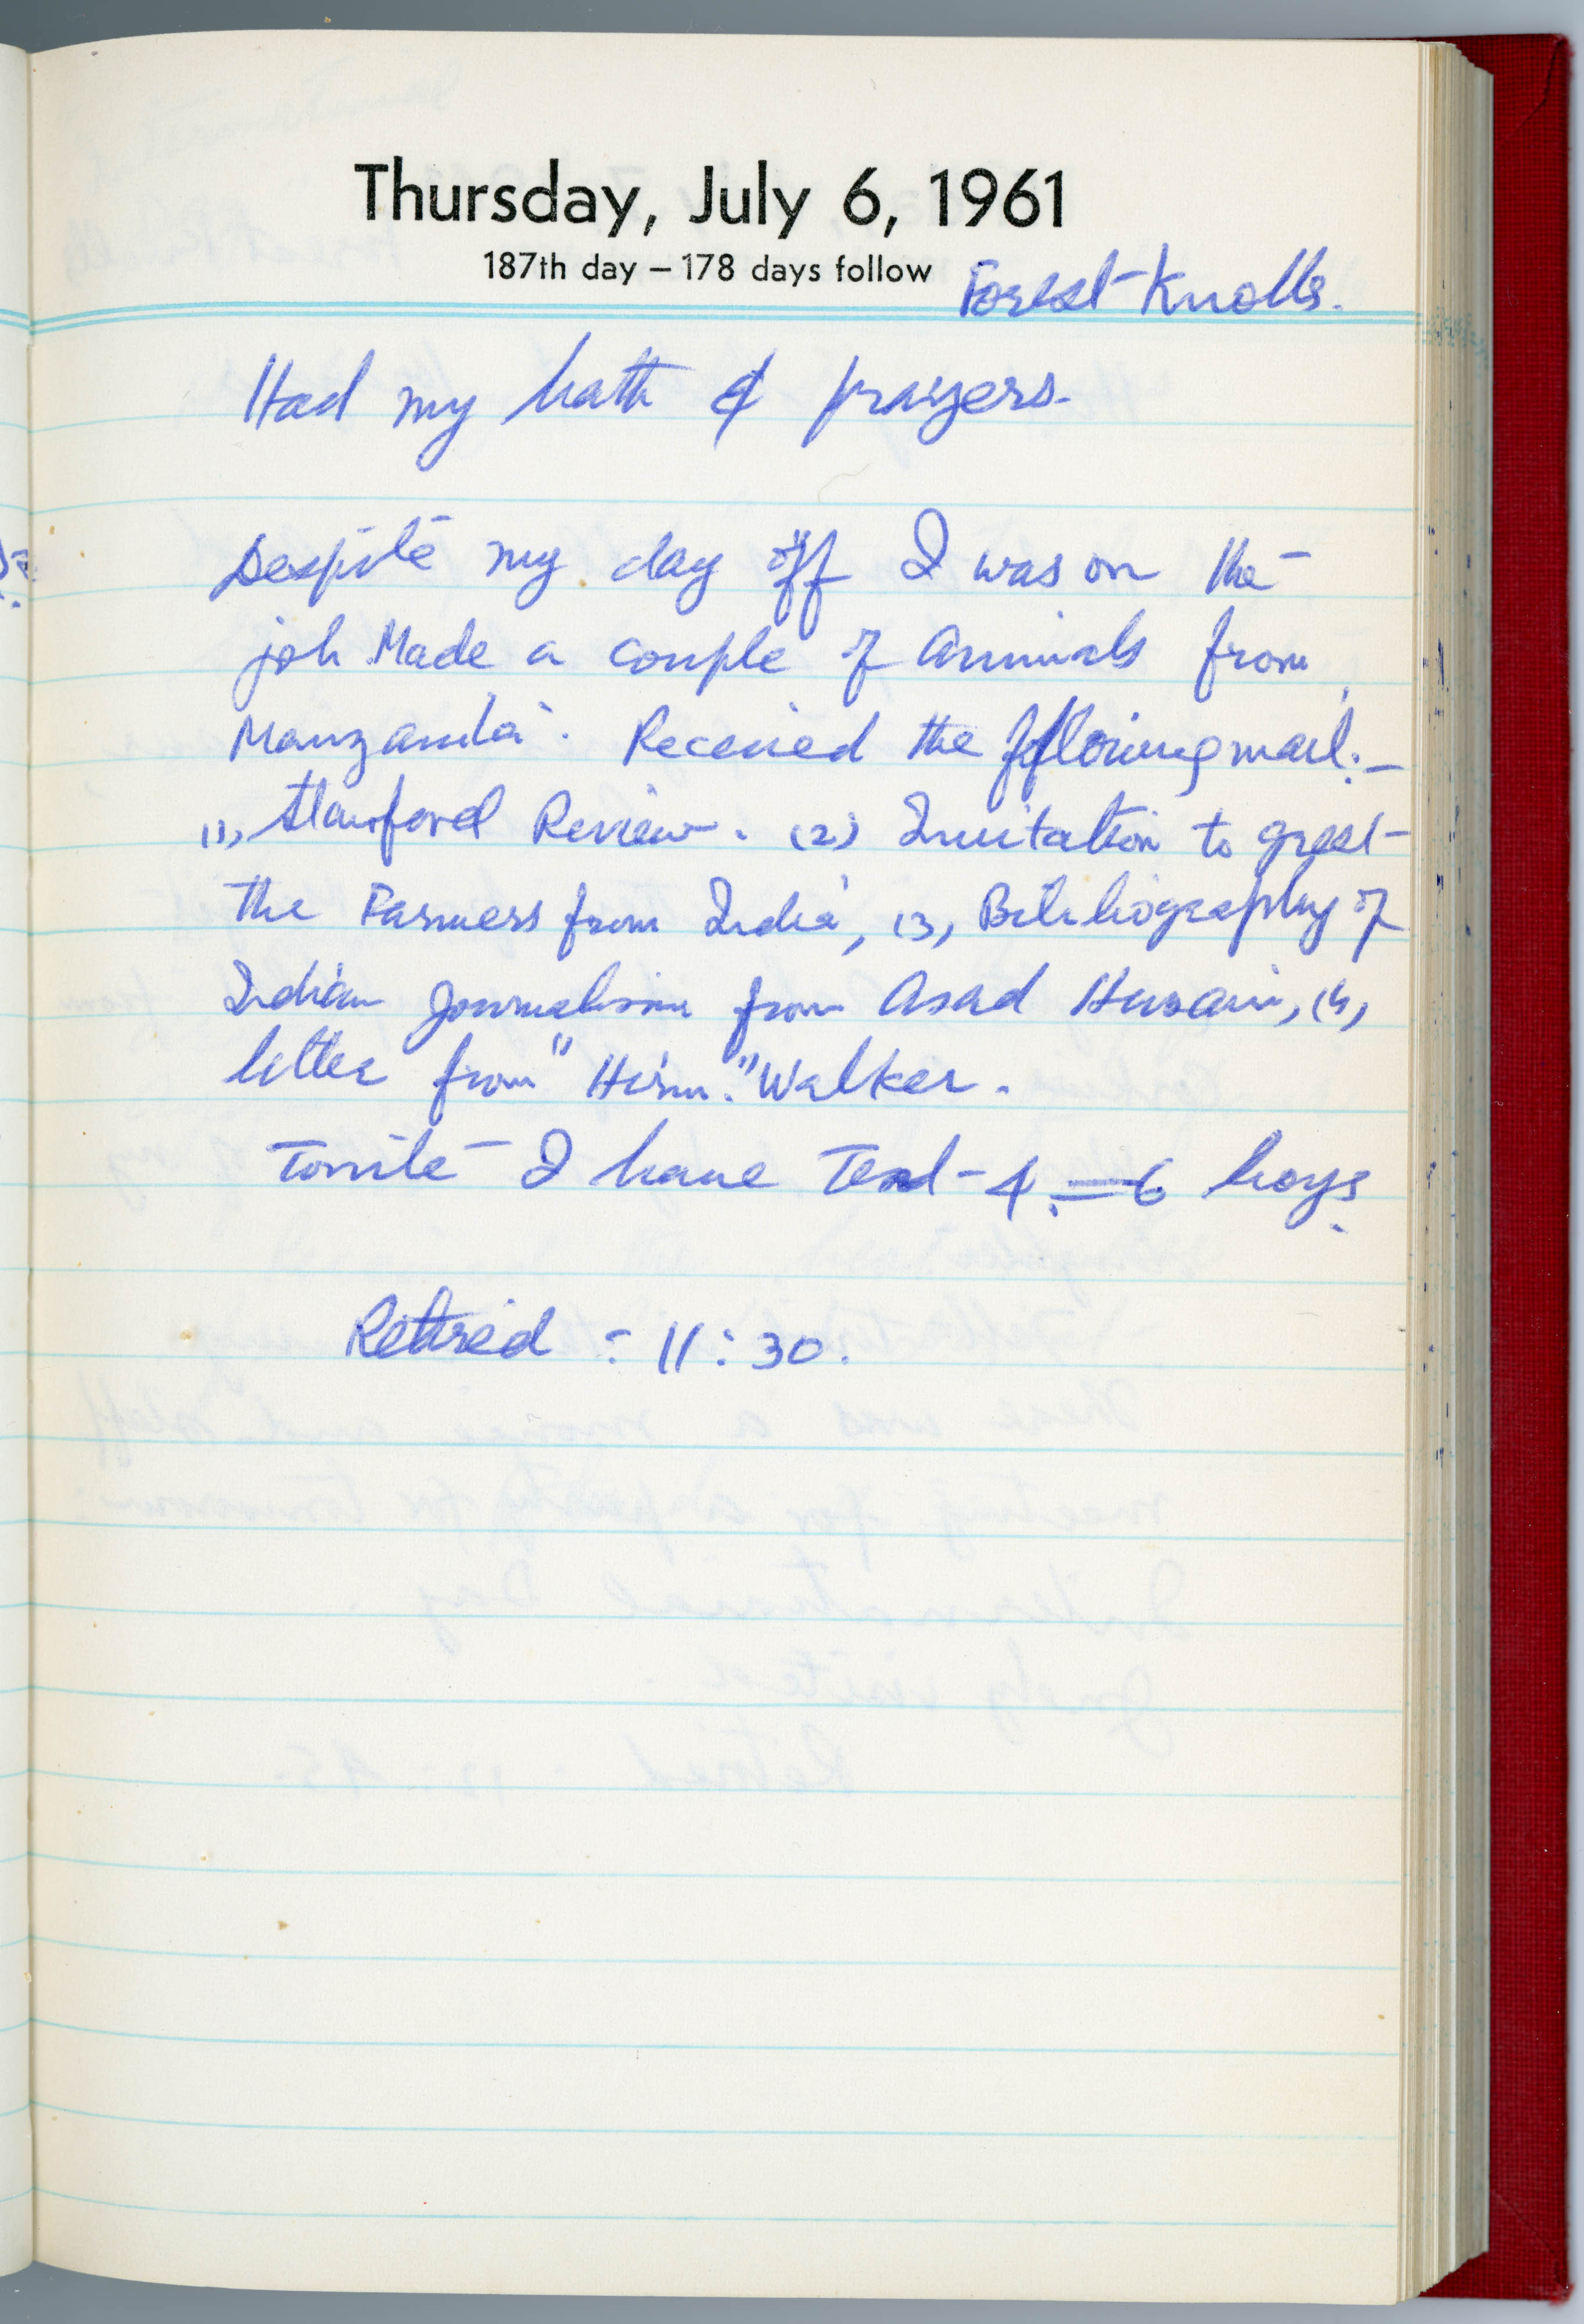 Thursday, July 6, 1961
187th day – 178 days follow
Forest Knolls.
Had my bath & prayers.
Despite my day off I was on the
job Made a couple of animals from
Manzanita. Received the following mail:–
(1) Stanford Review. (2) Invitation to greet
the Farmers from India, (3) Bibliography of
Indian Journalism from Asad Husain, (4)
letter from "Him." Walker.
Tonite I have Tent-4 – 6 boys.
Retired - 11:30.